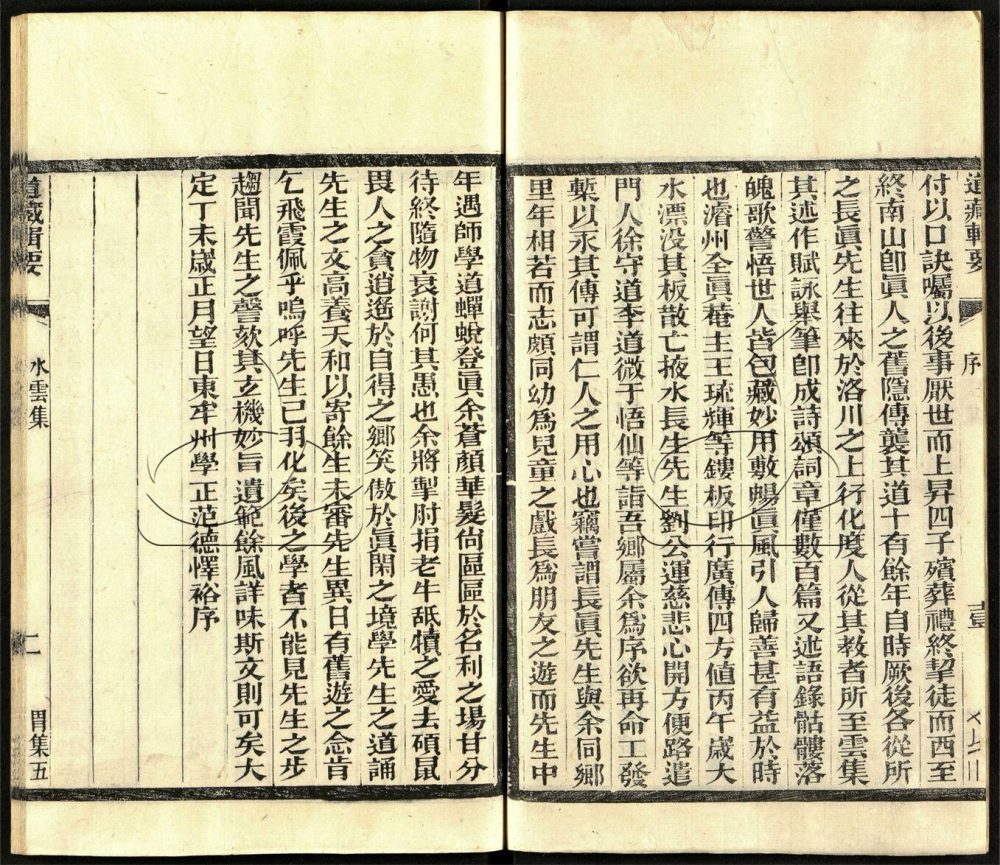 道藏輯要
序
壹
付以口訣囑以後事厭世而上昇四子殯葬禮終挈徒而西至
終南山卽眞人之舊隱傳襲其道十有餘年自時厥後各從所
之長眞先生往來於洛川之上行化度人從其教者所至雲集
其述作賦詠舉筆卽成詩頌詞章僅數百篇又述語錄骷髏落
魄歌警悟世人皆包藏妙用敷暢眞風引人歸善甚有益於時
也濬州全眞菴主王琉輝等鏤板印行廣傳四方値丙午歲大
水漂没其板散亡掖水長生先生劉公運慈悲心開方便路遣
門人徐守道李道微于悟仙等詣吾鄉屬余爲序欲再命工發
槧以永其傳可謂仁人之用心也竊嘗謂長眞先生與余同鄉
里年相若而志頗同幼爲兒童之戲長爲朋友之遊而先生中
年遇師學道蟬蛻登眞余蒼顏華髮尙區區於名利之場甘分
待終隨物衰謝何其愚也余將掣肘捐老牛舐犢之愛去碩鼠
畏人之貪逍遙於自得之鄉笑傲於眞閑之境學先生之道誦
先生之文高養天和以寄餘生未審先生異日有舊遊之念肯
乞飛霞佩乎嗚呼先生已羽化矣後之學者不能見先生之步
趨聞先生之謦欬其玄機妙旨遺範餘風詳味斯文則可矣大
定丁未歲正月望日東牢州學正范德懌裕序
道藏輯要
水雲集
二
胃集五